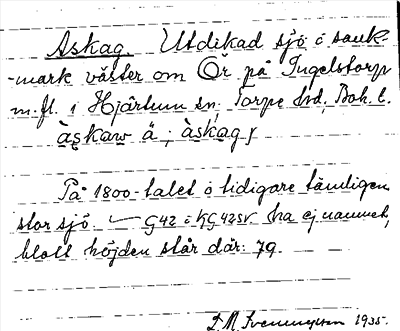 Askag. Utdikad sjö o sank-
-mark väster om Ör på Ingelstorp
m.fl. i Hjärtum sn, Torpe hd, Boh. l.
àskaw ä ; àskag
På 1800-talet o tidigare tämligen
stor sjö. G42 o KG42SV ha ej namnet,
blott höjden står där: 79.
1935.